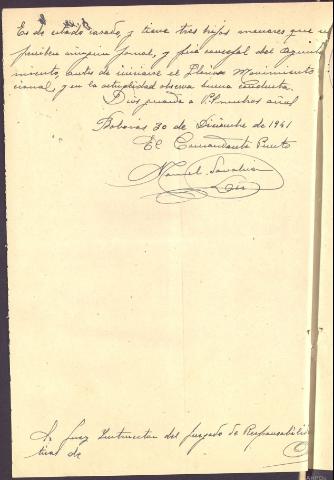 Es de estado casado, y tiene tres hijos menores que no
perciben ningun jornal, y fue concejal del Ayunta
miento, antes de iniciarse el Glorioso Movimiento
cional, y en la actualidad observa buena conducta.
Dios guarde a V. muchos años
30 de Diciembre de 1941
El Comandante Puesto
Manuel
Sr Juez Instructor del Juzgado de Responsabilida
de